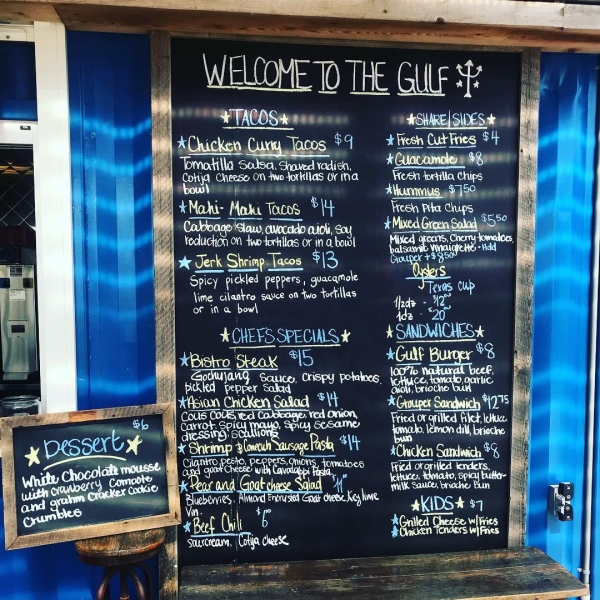 WELCOME TO THE GULF
TACOS
Chicken Curry Tacos $9
Tomatilla Salsa, Shaved radish,
Cotija Cheese on two tortillas or in a
bowl
Mahi-Mahi Tacos $14
Cabbage Slaw, avocado aioli, soy
reduction on two tortillas or in a bowl
Jerk Shrimp Tacos $13
Spicy pickled peppers, guacamole
lime cilantro sauce on two tortillas
or in a bowl
CHEF'S SPECIALS
Bistro Steak $15
Gochujang sauce, crispy potatoes,
pickled pepper salad
Asian Chicken Salad $14
Cous Cous, red cabbage, red onion,
carrot, spicy mayo, spicy sesame
dressing, scallions
Shrimp & Conecuh Sausage Pasta $14
Cilantro pesto, peppers, onions, tomatoes
and goat cheese with Cavatappi Pasta
Pear and Goat cheese Salad
Blueberries, Almond Encrusted Goat cheese, Key lime
Vin.
Beef Chili $6
Sour cream, Cotija Cheese
SHARE/SIDES
Fresh Cut Fries $4
Guacamole $8
Fresh tortilla Chips
Hummus $7.50
Fresh Pita Chips
Mixed Green Salad $5.50
Mixed greens, Cherry tomatoes,
balsamic vinaigrette - Add
Grouper + $8.50
Oysters
Texas cup
1/2dz - $12
1dz - $20
SANDWICHES
Gulf Burger $8
100% natural beef,
lettuce, tomato, garlic
aioli, brioche bun
Grouper Sandwich $12.75
Fried or grilled filet, lettuce
tomato, lemon dill, brioche
bun
Chicken Sandwich $8
Fried or grilled tenders,
lettuce, tomato, spicy butter-
milk sauce, brioche bun
KIDS $7
Grilled Cheese w/Fries
Chicken Tenders w/Fries
$6
Dessert
White Chocolate mousse
with cranberry Compote
and grahm cracker cookie
Crumbles